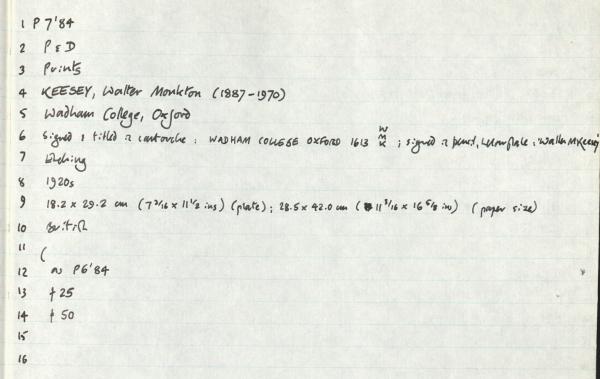 1 P 7'84
2 P & D
3 Prints
4 KEESEY, Walter Monkton (1887-1970)
5 Wadham College, Oxford
6 Signed & titled in cartouche : WADHAM COLLEGE OXFORD 1613 W M K ; signed in pencil, below plate : 'Walter M Keesey
7 Etching
8 1920s
9 18.2 x 29.2 cm (7 3/16 x 11 1/2 ins) (plate) ; 28.5 x 42.0 cm (11 3/16 x 16 5/8 ins) (paper size)
10 British
11 (
12 as P6'84
13 25
14 50
15
16